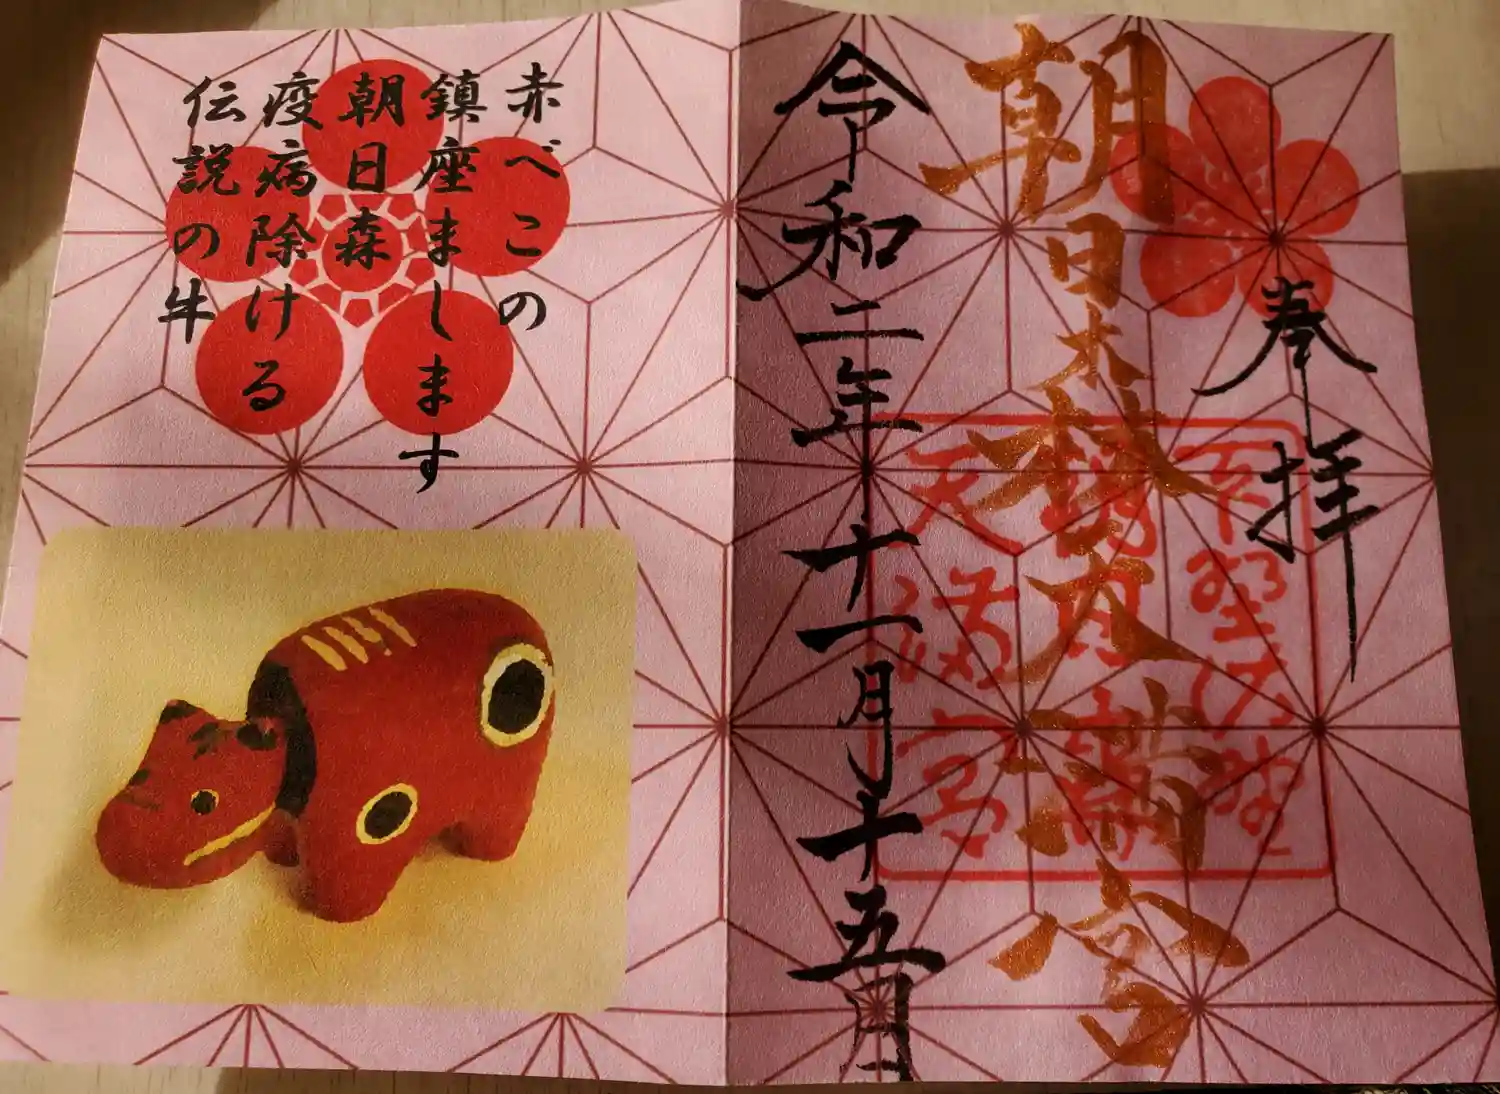 奉拝
朝日森天満宮
下野佐野
朝日森
天満宮
令和二年十一月十五日
赤べこの
鎮座まします
朝日森
疫病除ける
伝説の牛